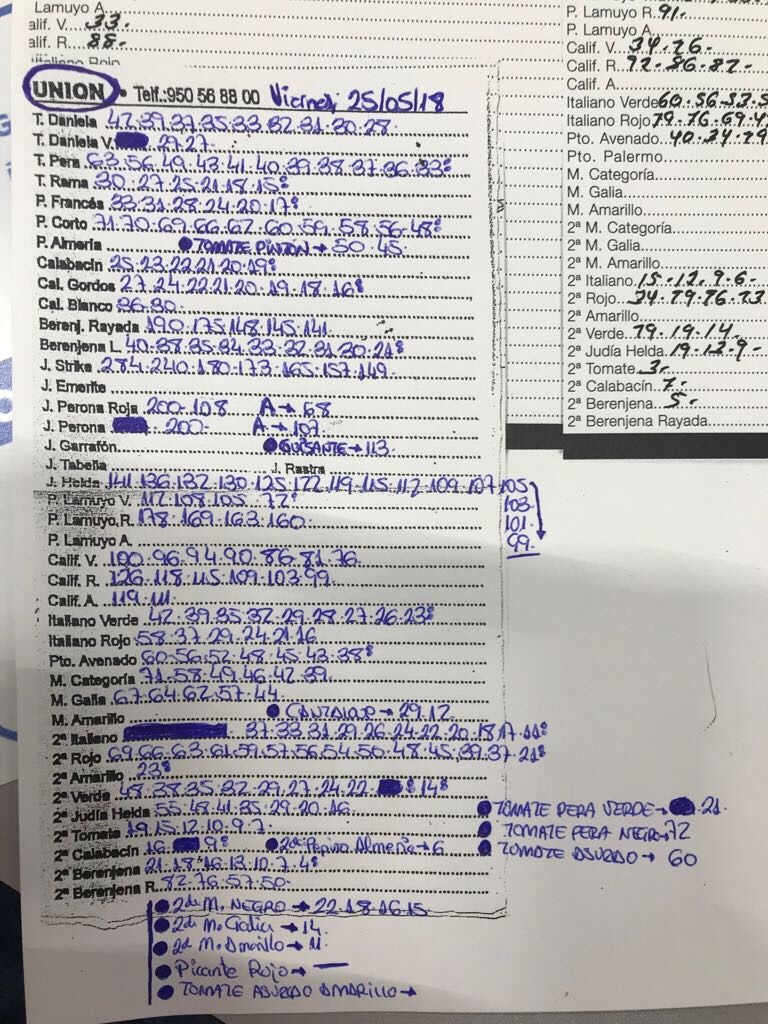 Lamuyo A
Calif. V. 33.
alif. R. 88.
UNION Telf.:950 56 88 00 Viernes, 25/05/18
T. Daniela 47.39.37.35.33.32.31.30.28
T. Daniela V. 29.27.
T. Pera 63.56.49.43.41.40.39.38.37.36.33
T. Rama 30.27.25.21.18.15
P. Francés 33.31.28.24.20.17
P. Corto 71.70.69.66.62.60.59.58.56.48
P. Almería TOMATE PINTON → 50.45
Calabacín 25.23.22.21.20.19
Cal. Gordos 27.24.22.21.20.19.18.16
Cal. Blanco 36.30
Berenj. Rayada 190.175.148.145.141
Berenjena L. 40.38.35.34.33.32.31.30.21
J. Strike 284.240.180.173.165.157.149
J. Emerite
J. Perona Roja 200.108 A → 68
J. Perona 200. A → 107
J. Garrafón GUISANTE → 113
J. Tabella J. Rastra
J. Helda 141.136.132.130.125.122.119.115.112.109.107.105
103.
101.
99.
P. Lamuyo V. 117.108.105.72
P. Lamuyo R. 178.169.163.160
P. Lamuyo A
Calif. V. 100.96.94.90.86.81.76
Calif. R. 126.118.115.109.103.99
Calif. A. 119.111
Italiano Verde 42.39.35.32.29.28.27.26.23
Italiano Rojo 58.37.29.24.21.16
Pto. Avenado 60.56.52.48.45.43.38
M. Categoría 71.58.49.46.42.39
M. Galia 67.64.62.57.44
M. Amarillo CANTALOUP → 29.12
2ª Italiano 37.33.31.29.26.24.22.20.18.17.11
2ª Rojo 69.66.63.61.59.57.56.54.50.48.45.39.37.21
2ª Amarillo 23
2ª Verde 48.38.35.32.29.27.24.22 14
2ª Judía Helda 55.48.41.35.29.20.16
2ª Tomate 19.15.12.10.9.7
2ª Calabacín 16 9 2da Pepino Almeria → 6
2ª Berenjena 21.18.16.13.10.7.4
2ª Berenjena R. 82.76.57.50
TOMATE PERA VERDE → 21.
TOMATE PERA NEGRO → 72
TOMATE ASURADO → 60
2da M. NEGRO → 22.18.16.15
2da M. Galia → 14
2da M. Amarillo → 11
Picante Rojo → —
TOMATE ASURADO AMARILLO →
P. Lamuyo R. 91
P. Lamuyo A.
Calif. V. 34.26
Calif. R. 92.86.82
Calif. A.
Italiano Verde 60.56.53.5
Italiano Rojo 79.76.69.4
Pto. Avenado 40.34.29
Pto. Palermo
M. Categoría
M. Galia
M. Amarillo
2ª M. Categoría
2ª M. Galia
2ª M. Amarillo
2ª Italiano 15.12.9.6
2ª Rojo 34.29.26.23
2ª Amarillo
2ª Verde 29.19.14
2ª Judía Helda 19.12.9
2ª Tomate 3
2ª Calabacín 7
2ª Berenjena 5
2ª Berenjena Rayada